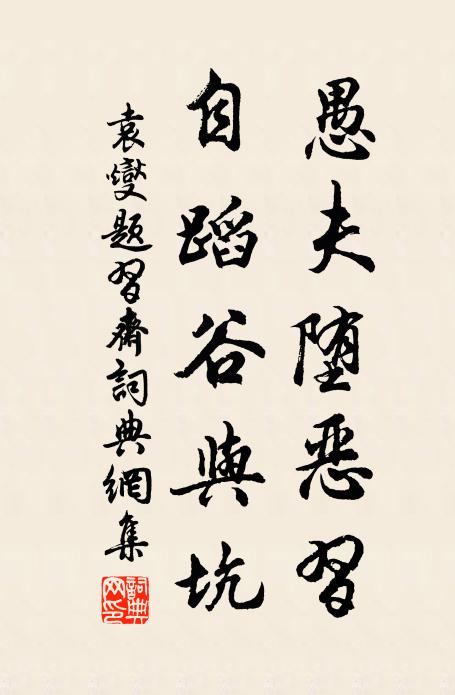 愚夫堕恶习
自蹈谷與坑
袁燮题習齋詞典網集
詞典网印